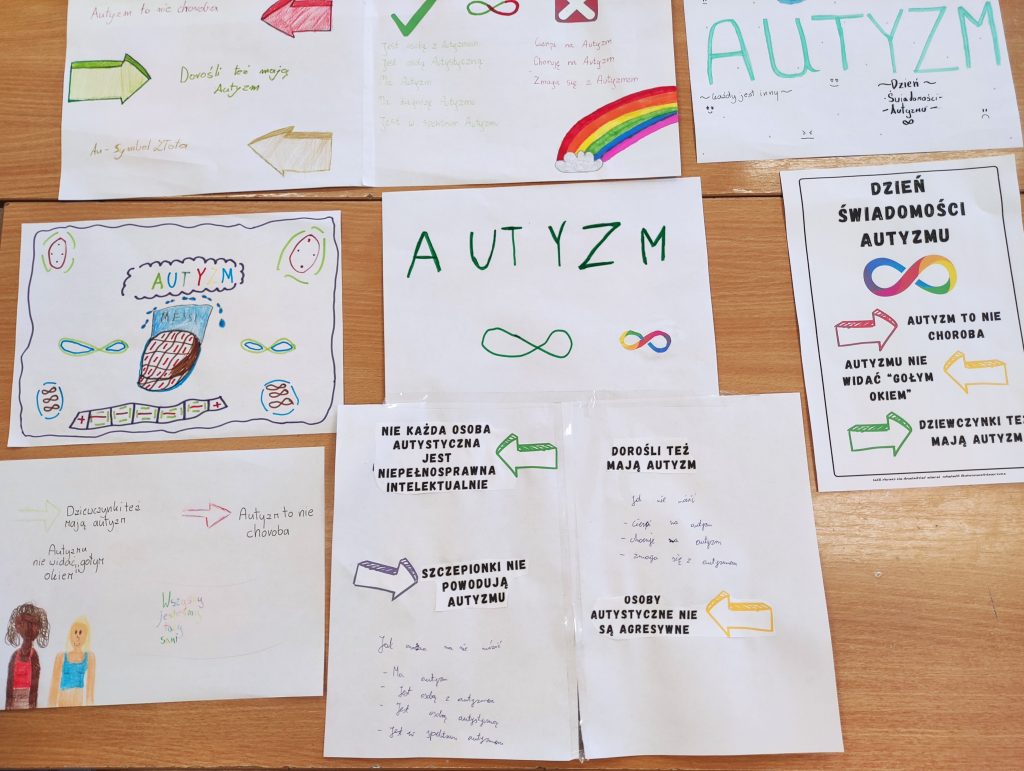 Autyzm to nie choroba
Dorośli też mają
Autyzm
Au - Symbol Złota
Jest osobą z Autyzmem
Jest osobą Autystyczną
Ma Autyzm
Ma diagnozę Autyzmu
Jest w spektrum Autyzmu
Cierpi na Autyzm
Choruje na Autyzm
Zmaga się z Autyzmem
AUTYZM
~każdy jest inny~
~Dzień~
-Świadomości-
-Autyzmu-
AUTYZM
MESSI
AUTYZM
DZIEŃ
ŚWIADOMOŚCI
AUTYZMU
AUTYZM TO NIE
CHOROBA
AUTYZMU NIE
WIDAĆ "GOŁYM
OKIEM"
DZIEWCZYNKI TEŻ
MAJĄ AUTYZM
Dziewczynki też
mają autyzm
Autyzm to nie
choroba
Autyzmu
nie widać „gołym
okiem"
Wszyscy
jesteśmy
tacy
sami
NIE KAŻDA OSOBA
AUTYSTYCZNA
JEST
NIEPEŁNOSPRAWNA
INTELEKTUALNIE
SZCZEPIONKI NIE
POWODUJĄ
AUTYZMU
Jak można na nie mówić
- Ma autyzm
- Jest osobą z autyzmem
- Jest osobą autystyczną
- Jest w spektrum autyzmu
DOROŚLI TEŻ
MAJĄ AUTYZM
Jak nie mówić
- cierpi na autyzm
- choruje na autyzm
- zmaga się z autyzmem
OSOBY
AUTYSTYCZNE NIE
SĄ AGRESYWNE